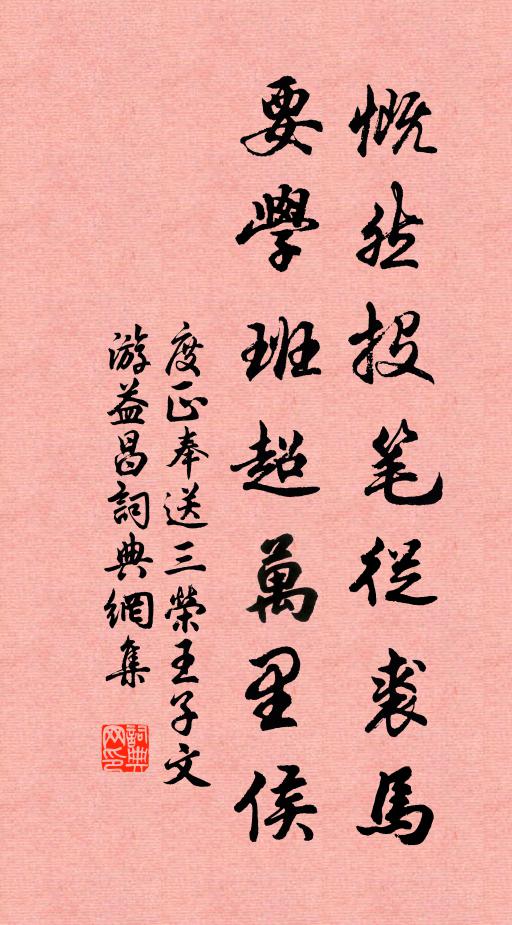 慨然投笔從裘馬
要學班超萬里侯
度正奉送三榮王子文
游益昌詞典網集
詞典网印